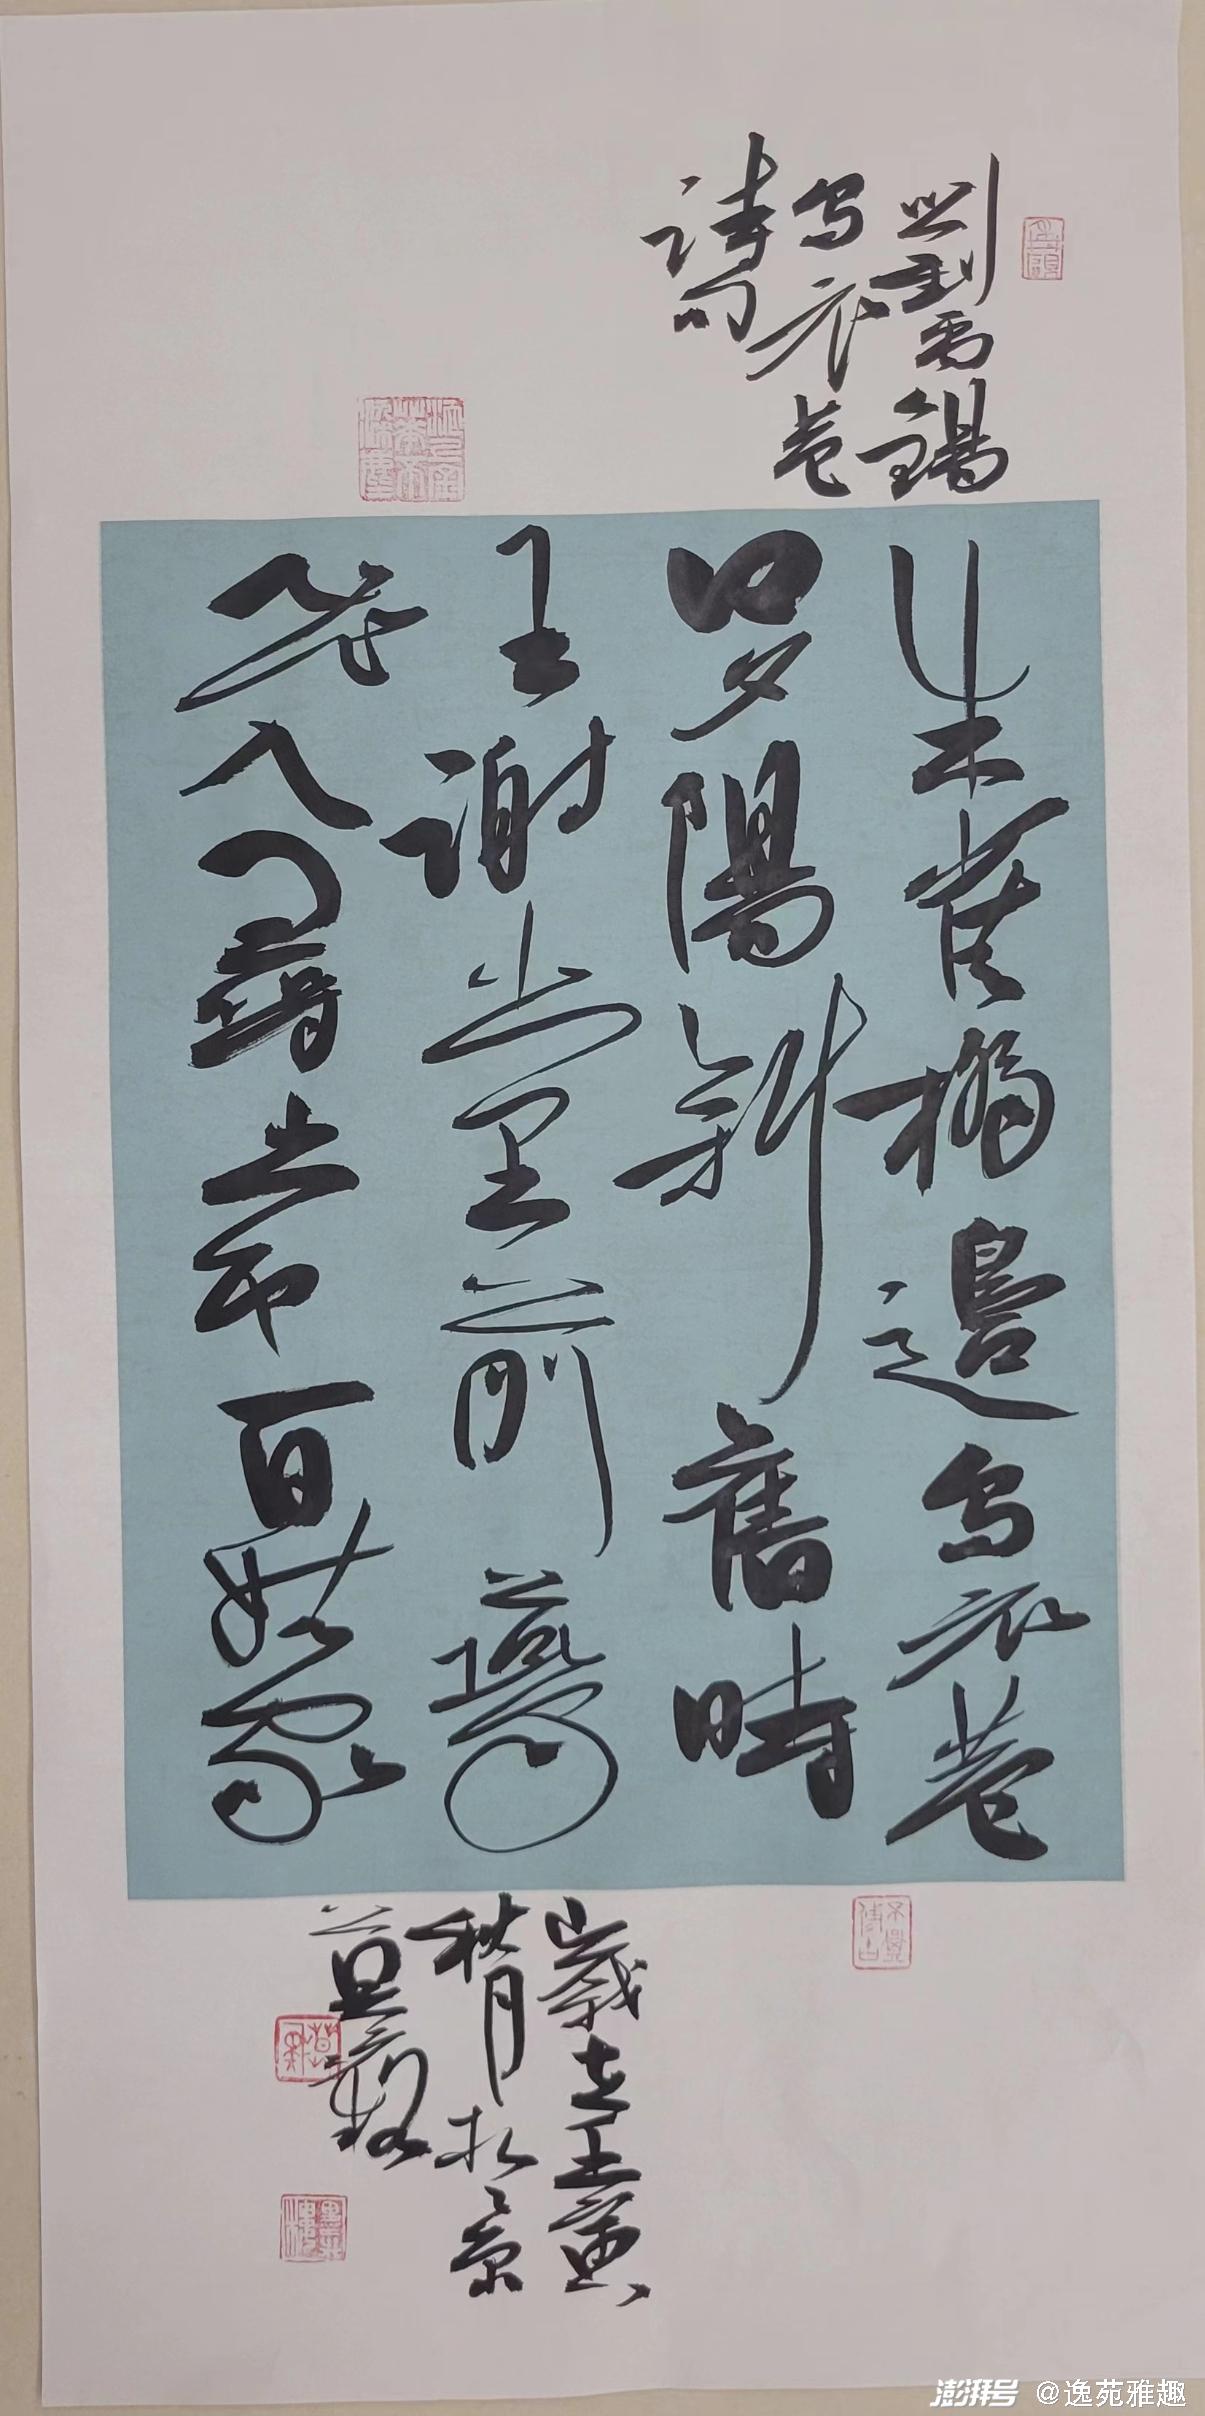 劉禹錫
烏衣巷
詩句
朱雀橋邊烏衣巷
口夕陽斜舊時
王謝堂前燕
飛入尋常百姓家
歲在壬寅
秋月於京
澎湃号 @逸苑雅趣